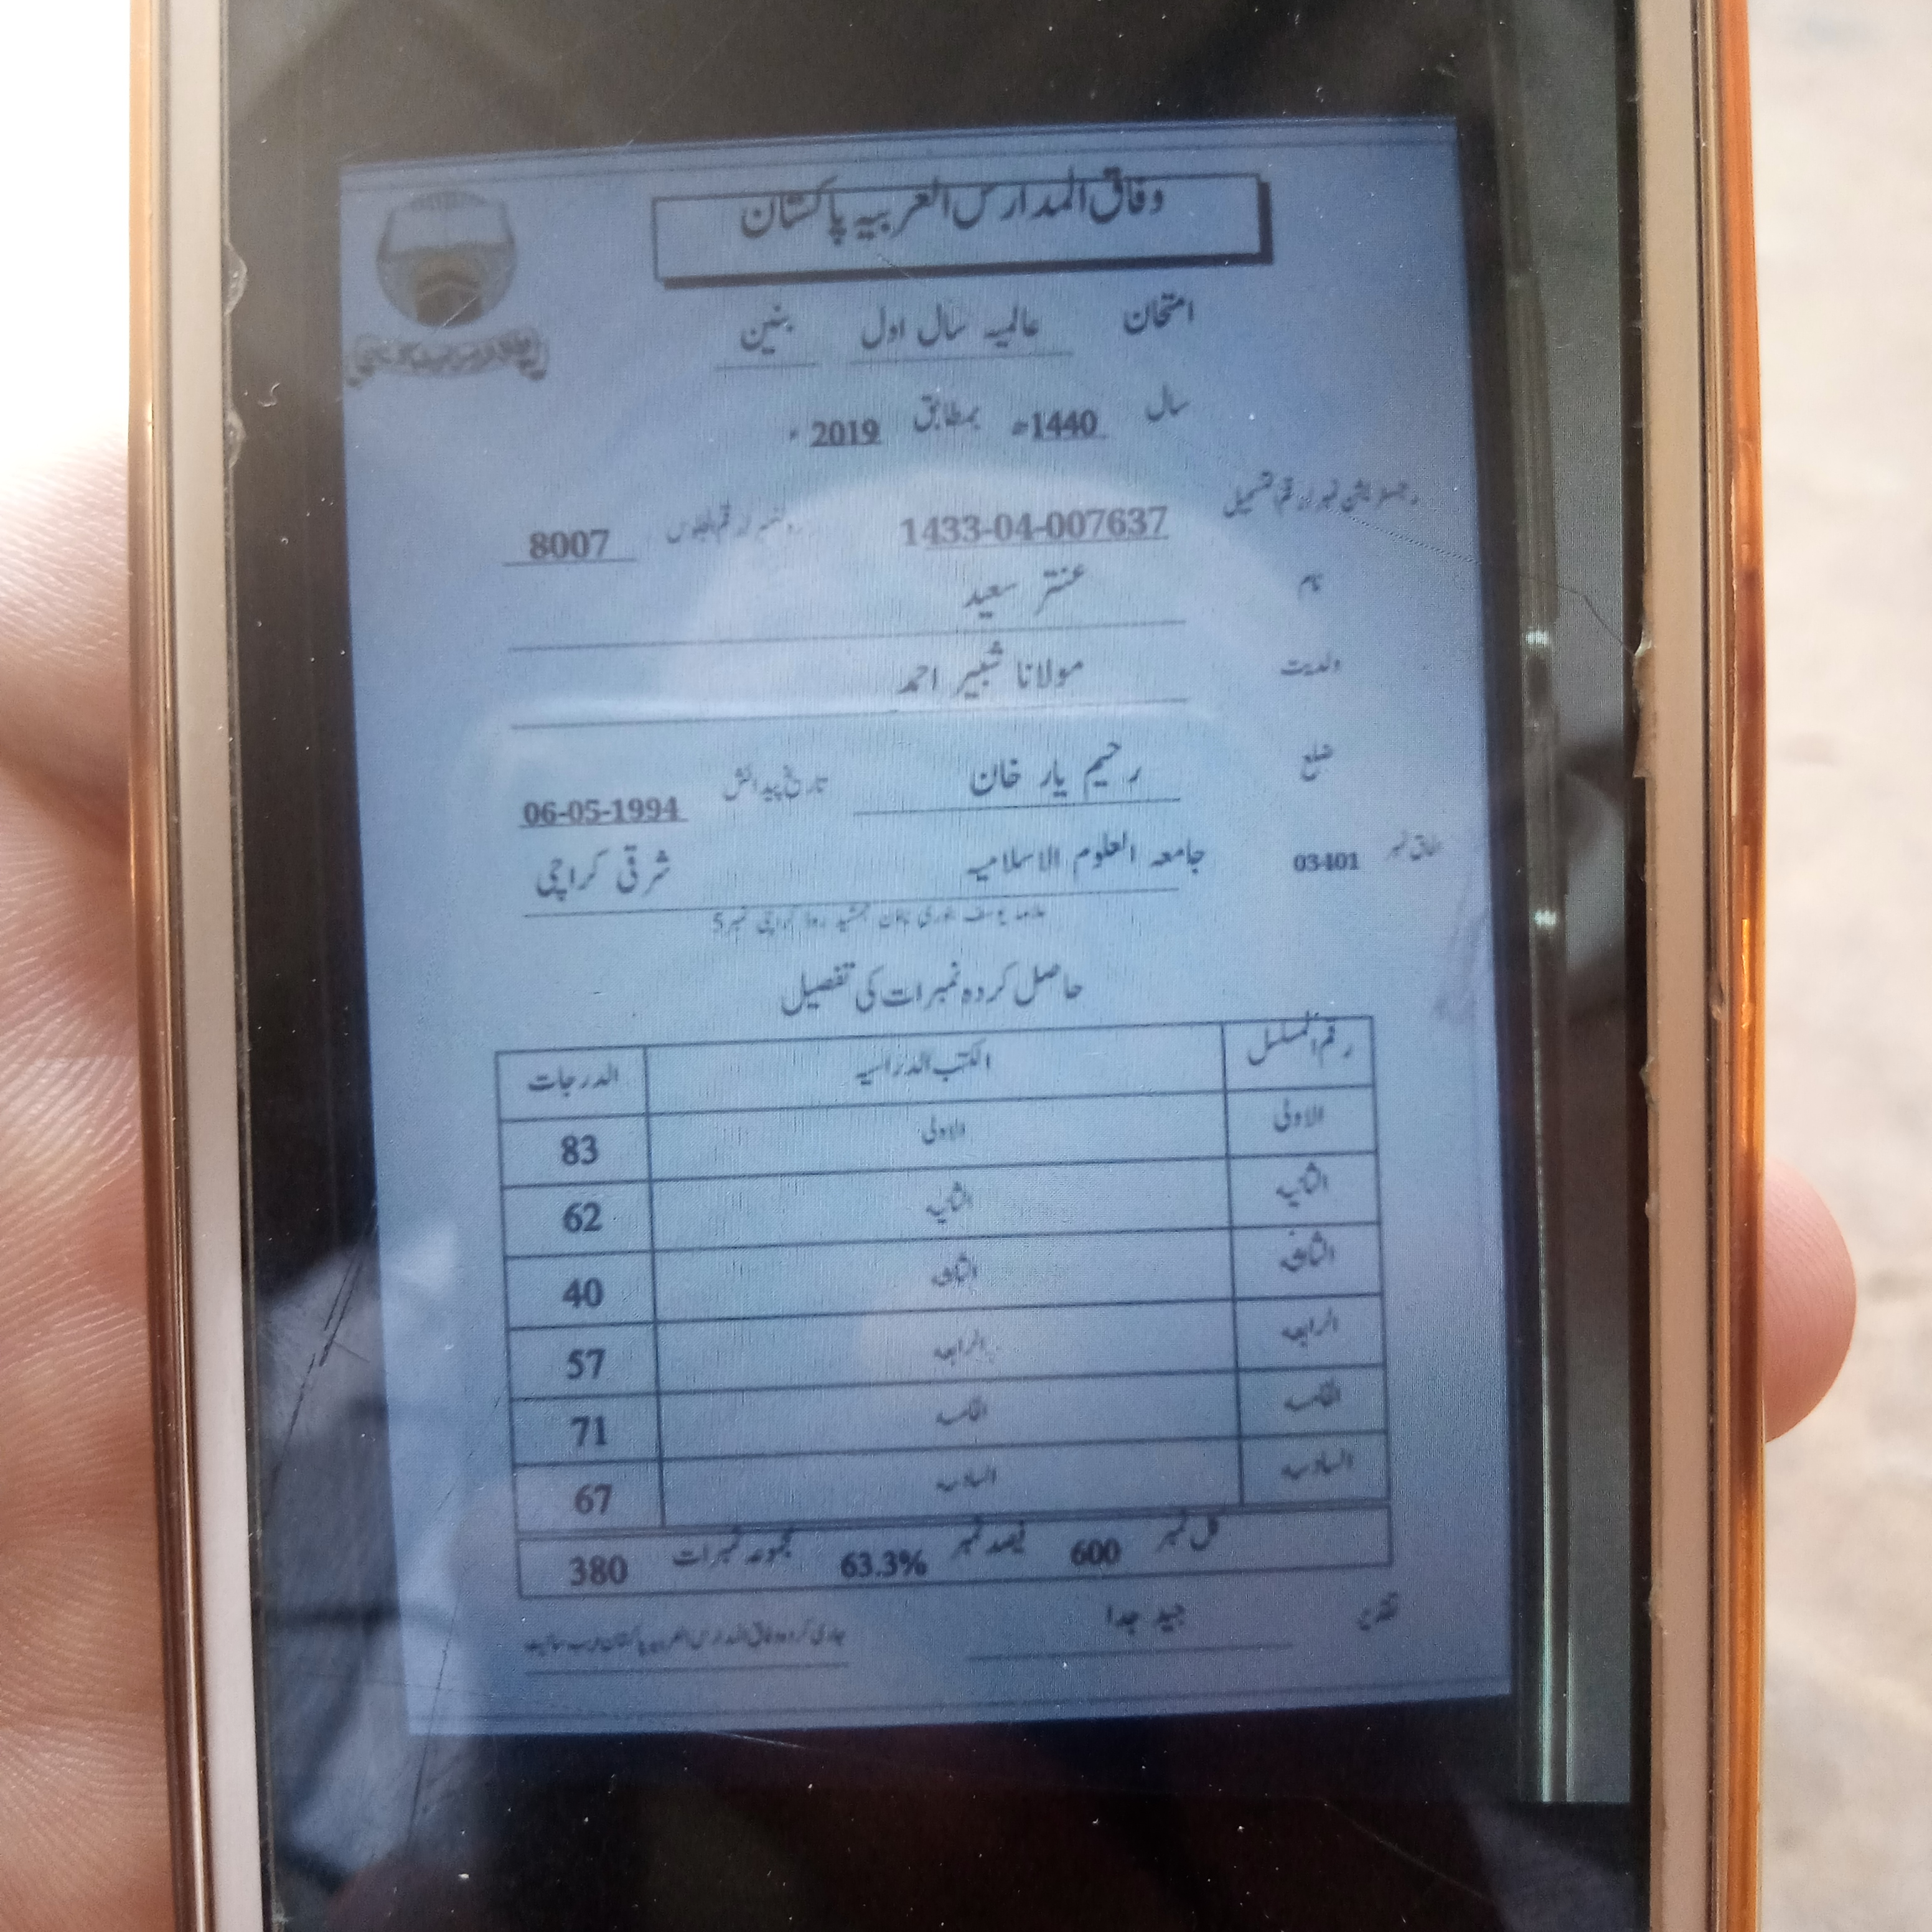 وفاق المدارس العربیہ پاکستان
امتحان عالمیہ سال اول بنین
سال 1440ھ بمطابق 2019ء
رجسٹریشن نمبر / رقم التسجیل 1433-04-007637 رول نمبر / رقم الجلوس 8007
نام عنتر سعید
ولدیت مولانا شبیر احمد
ضلع رحیم یار خان تاریخ پیدائش 06-05-1994
الحاق نمبر 03401 جامعہ العلوم الاسلامیہ شرقی کراچی
علامہ یوسف بنوری ٹاؤن جمشید روڈ کراچی نمبر 5
حاصل کردہ نمبرات کی تفصیل
رقم المسلسل الکتب الدراسیہ الدرجات
الاولی الاولی 83
الثانیہ الثانیہ 62
الثالثہ الثالثہ 40
الرابعہ الرابعہ 57
الخامسہ الخامسہ 71
السادسہ السادسہ 67
کل نمبر 600 فیصد نمبر 63.3% مجموعہ نمبرات 380
تقدیر جید جدا جاری کردہ وفاق المدارس العربیہ پاکستان ویب سائیٹ